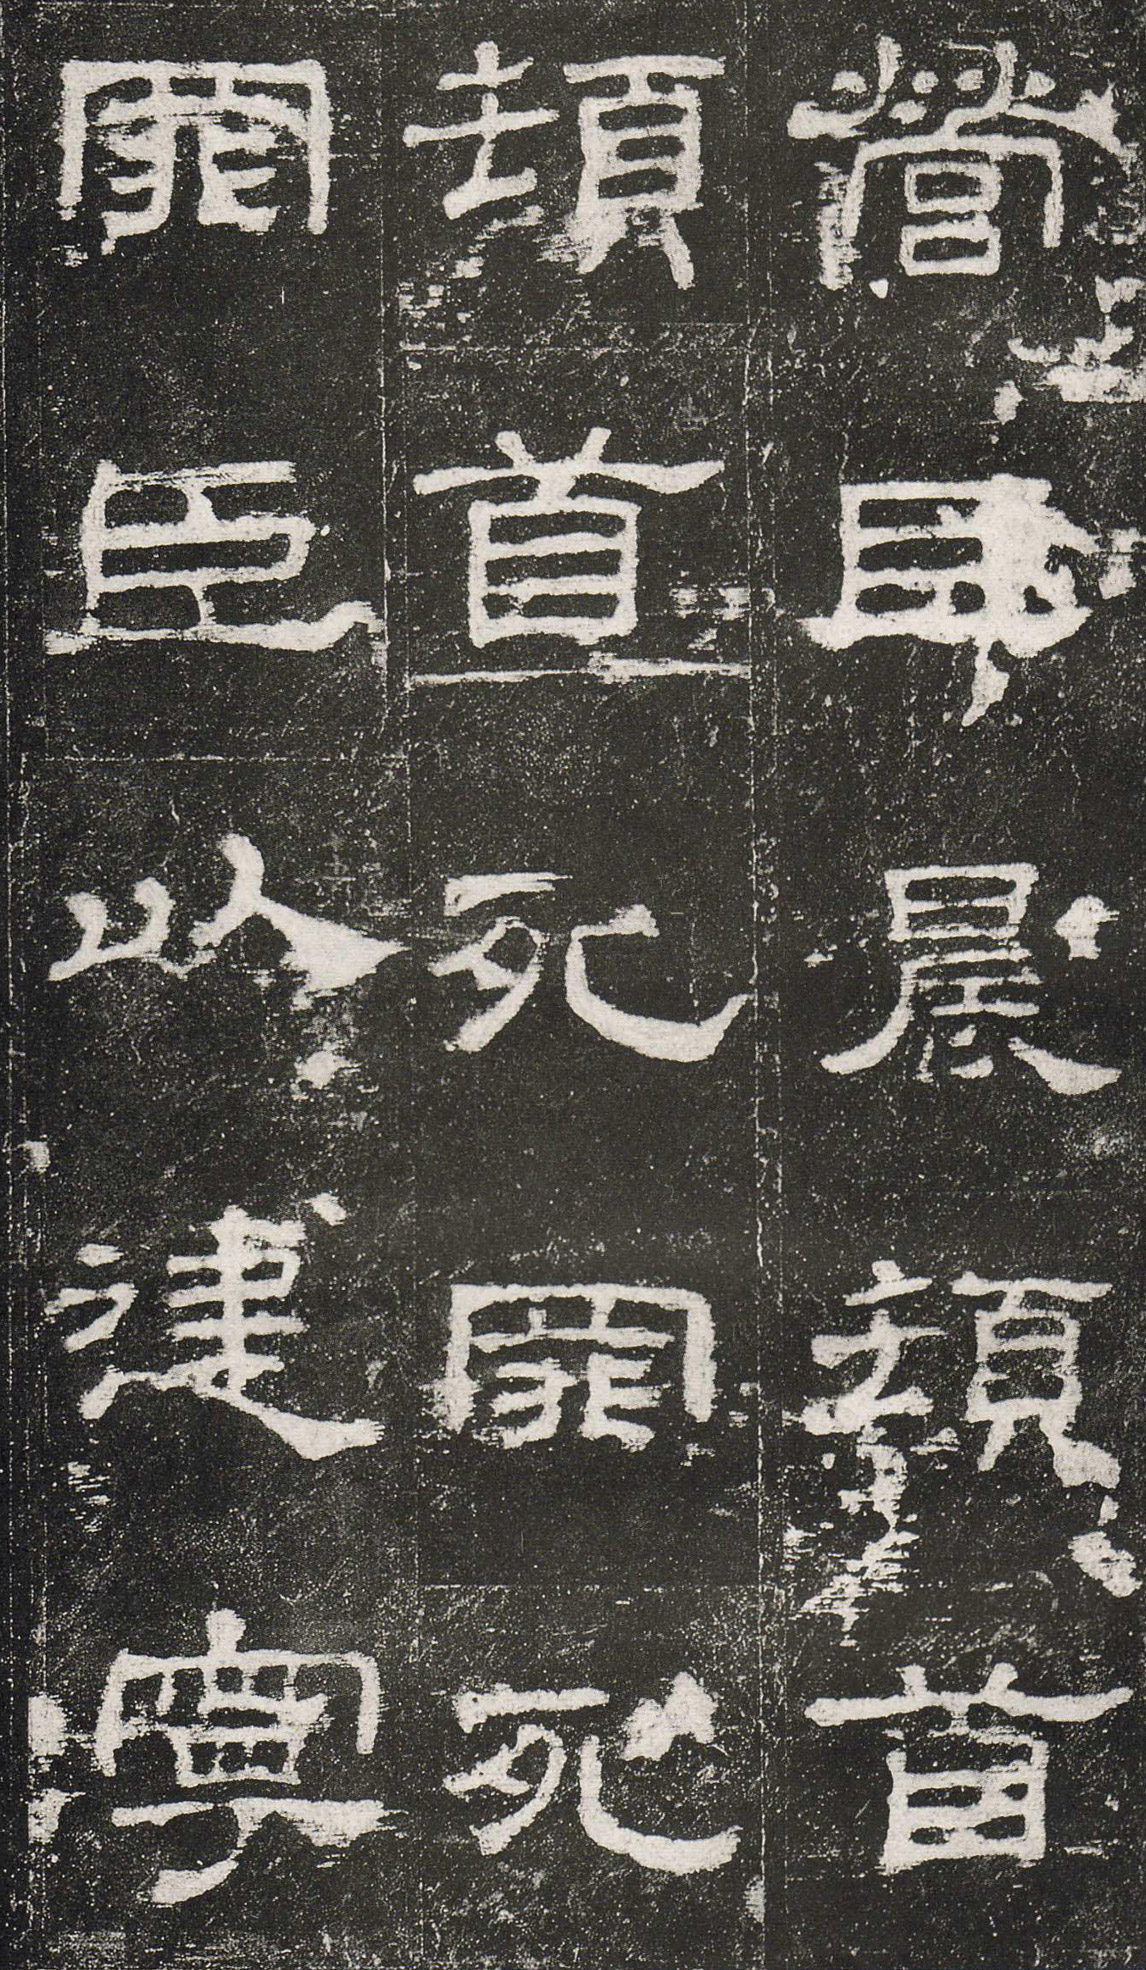 臣晨頓首
頓首死罪死
罪臣以建寧